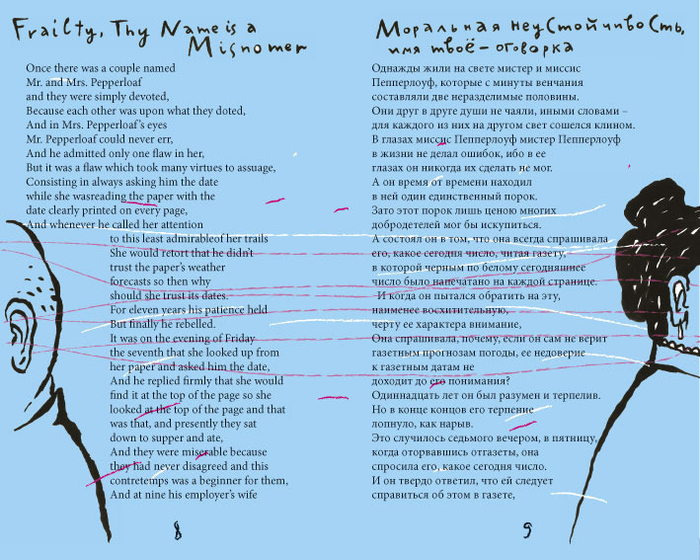 Frailty, Thy Name is a
Misnomer
Once there was a couple named
Mr. and Mrs. Pepperloaf
and they were simply devoted,
Because each other was upon what they doted,
And in Mrs. Pepperloaf's eyes
Mr. Pepperloaf could never err,
And he admitted only one flaw in her,
But it was a flaw which took many virtues to assuage,
Consisting in always asking him the date
while she wasreading the paper with the
date clearly printed on every page,
And whenever he called her attention
to this least admirableof her trails
She would retort that he didn't
trust the paper's weather
forecasts so then why
should she trust its dates.
For eleven years his patience held
But finally he rebelled.
It was on the evening of Friday
the seventh that she looked up from
her paper and asked him the date,
And he replied firmly that she would
find it at the top of the page so she
looked at the top of the page and that
was that, and presently they sat
down to supper and ate,
And they were miserable because
they had never disagreed and this
contretemps was a beginner for them,
And at nine his employer's wife
8
Моральная неустойчивость,
имя твоё – оговорка
Однажды жили на свете мистер и миссис
Пепперлоуф, которые с минуты венчания
составляли две неразделимые половины.
Они друг в друге души не чаяли, иными словами –
для каждого из них на другом свет сошелся клином.
В глазах миссис Пепперлоуф мистер Пепперлоуф
в жизни не делал ошибок, ибо в ее
глазах он никогда их сделать не мог.
А он время от времени находил
в ней один единственный порок.
Зато этот порок лишь ценою многих
добродетелей мог бы искупиться.
А состоял он в том, что она всегда спрашивала
его, какое сегодня число, читая газету,
в которой черным по белому сегодняшнее
число было напечатано на каждой странице.
И когда он пытался обратить на эту,
наименее восхитительную,
черту ее характера внимание,
Она спрашивала, почему, если он сам не верит
газетным прогнозам погоды, ее недоверие
к газетным датам не
доходит до его понимания?
Одиннадцать лет он был разумен и терпелив.
Но в конце концов его терпение
лопнуло, как нарыв.
Это случилось седьмого вечером, в пятницу,
когда оторвавшись отгазеты, она
спросила его, какое сегодня число.
И он твердо ответил, что ей следует
справиться об этом в газете,
9